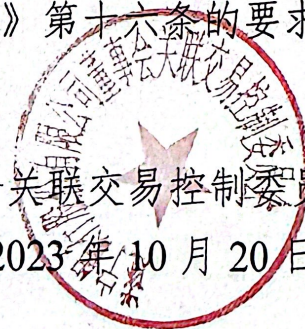 》第十六条的要求
关联交易控制委员
2023年10月20日
有限公司董事会关联交易控制委员会